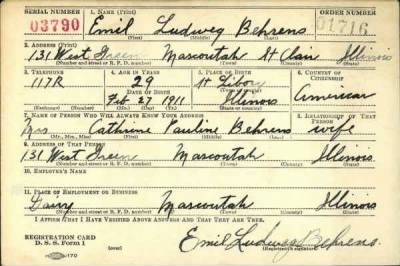 SERIAL NUMBER 1. NAME (Print) ORDER NUMBER
03790 Emil Ludweg Behrens 01716
(First) (Middle) (Last)
2. ADDRESS (Print)
131 West Green Mascoutah St Clair Illinois
(Number and street or R. F. D. number) (Town) (County) (State)
3. TELEPHONE 4. AGE IN YEARS 5. PLACE OF BIRTH 6. COUNTRY OF CITIZENSHIP
117R 29 St Libory
DATE OF BIRTH
Feb 27 1911 Illinois American
(Exchange) (Number) (Mo.) (Day) (Yr.) (State or country)
7. NAME OF PERSON WHO WILL ALWAYS KNOW YOUR ADDRESS 8. RELATIONSHIP OF THAT PERSON
Mrs Cathrine Pauline Behrens wife
(Mr., Mrs., Miss) (First) (Middle) (Last)
9. ADDRESS OF THAT PERSON
131 West Green Mascoutah Illinois
(Number and street or R. F. D. number) (Town) (County) (State)
10. EMPLOYER'S NAME
11. PLACE OF EMPLOYMENT OR BUSINESS
Dairy Mascoutah Illinois
(Number and street or R. F. D. number) (Town) (County) (State)
I AFFIRM THAT I HAVE VERIFIED ABOVE ANSWERS AND THAT THEY ARE TRUE.
REGISTRATION CARD
D. S. S. Form 1 Emil Ludweg Behrens
(Registrant's signature)